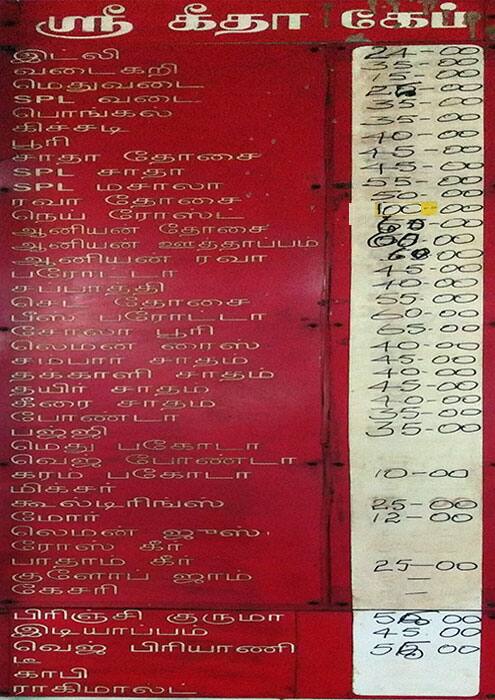 ஸ்ரீ கீதா கேப்
இட்லி 24-00
வடைகறி 35-00
மெதுவடை 15-00
SPL வடை
பொங்கல் 35-00
கிச்சடி 35-00
பூரி 40-00
சாதா தோசை 45-00
SPL சாதா 45-00
SPL மசாலா 55-00
ரவா தோசை 50-00
நெய் ரோஸ்ட் 100-00
ஆனியன் தோசை
ஆனியன் ஊத்தாப்பம்
ஆனியன் ரவா
பரோட்டா 45-00
சப்பாத்தி 40-00
செட் தோசை 55-00
பீஸ் பரோட்டா
சோலா பூரி
லெமன் ரைஸ் 40-00
சாம்பார் சாதம் 45-00
தக்காளி சாதம் 40-00
தயிர் சாதம் 45-00
கீரை சாதம் 40-00
போண்டா 35-00
பஜ்ஜி 35-00
மெது பகோடா
வெஜ் போண்டா
காரம் பகோடா 10-00
மிக்சர்
கூல்டிரிங்ஸ் 25-00
மோர் 12-00
லெமன் ஜுஸ்
ரோஸ் கீர்
பாதாம் கீர் 25-00
குளோப் ஜாம் —
கேசரி —
பிரிஞ்சி குருமா
இடியாப்பம் 45-00
வெஜ் பிரியாணி
டீ
காபி
ராகிமால்ட்